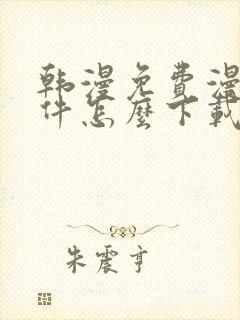 韩漫免费漫
件怎麼下載
朱震亨